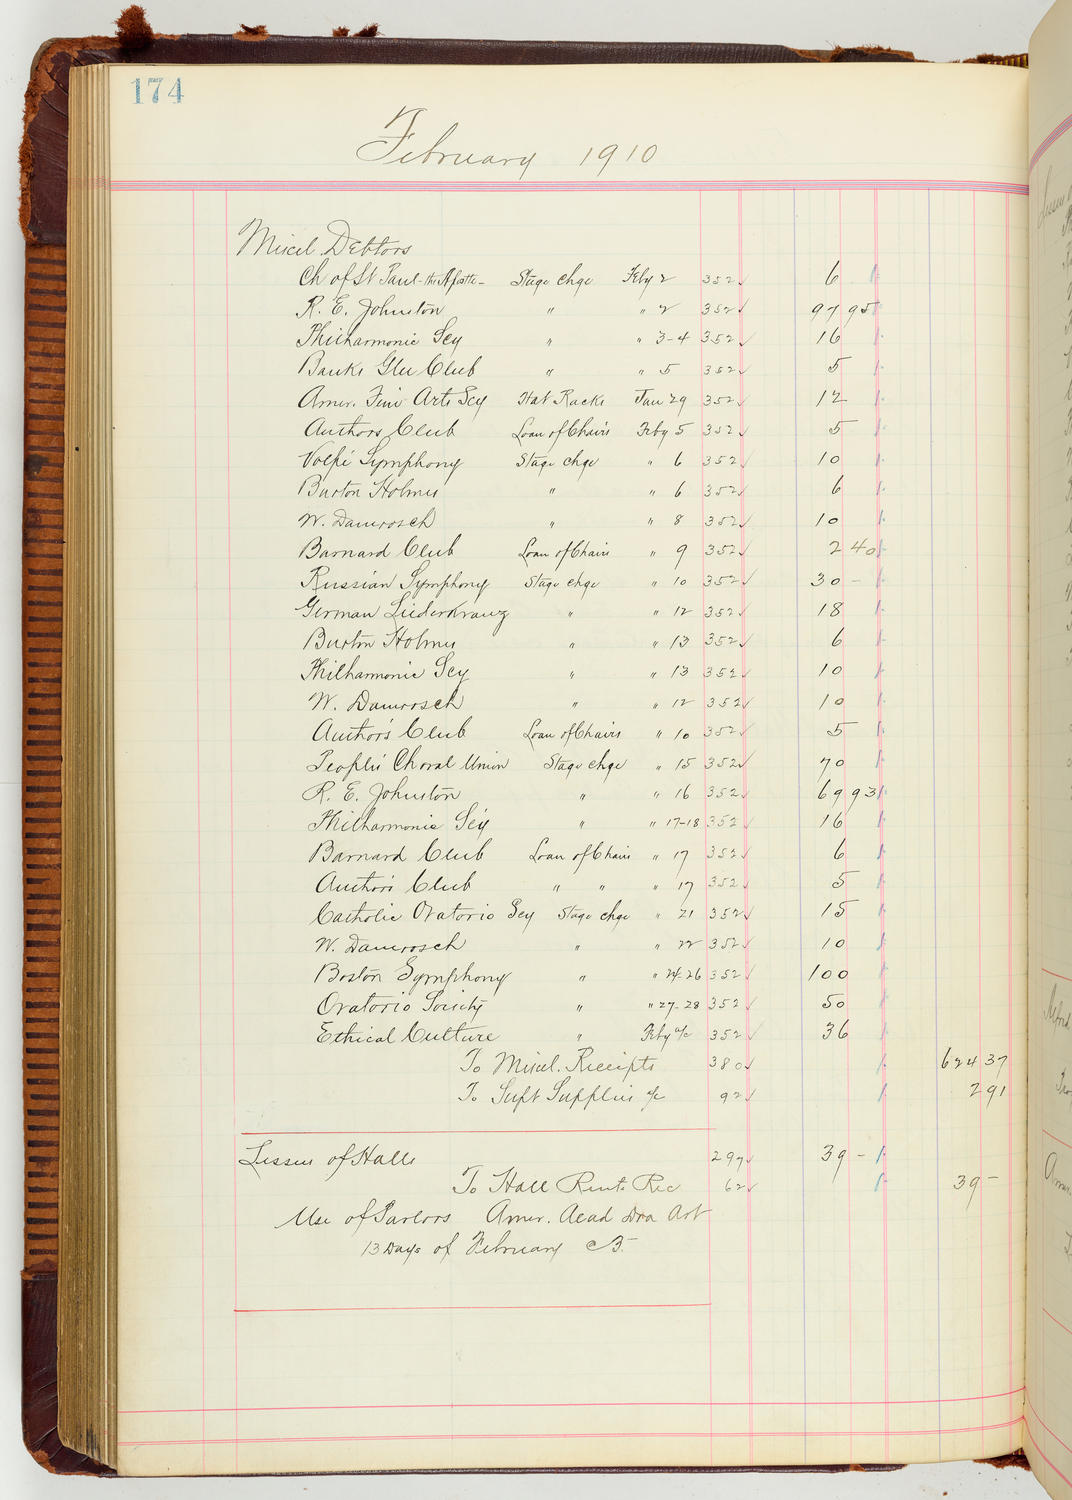 174
February 1910
Miscl. Debtors
Ch of St Paul-the Apostle- Stage chge Feby 2 352 6
R. E. Johnston " " 2 352 97 95
Philharmonic Scy " " 3-4 352 16
Banks Glee Club " " 5 352 5
Amer. Fine Arts Scy Hat Racks Jan 29 352 12
Authors Club Loan of Chairs Feby 5 352 5
Volpé Symphony Stage chge " 6 352 10
Burton Holmes " " 6 352 6
W. Damrosch " " 8 352 10
Barnard Club Loan of Chairs " 9 352 2 40
Russian Symphony Stage chge " 10 352 30 -
German Liederkranz " " 12 352 18
Burton Holmes " " 13 352 6
Philharmonic Scy " " 13 352 10
W. Damrosch " " 12 352 10
Author's Club Loan of Chairs " 10 352 5
Peoples' Choral Union Stage chge " 15 352 70
R. E. Johnston " " 16 352 69 93
Philharmonic Scy " " 17-18 352 16
Barnard Club Loan of Chairs " 17 352 6
Authors Club " " " 17 352 5
Catholic Oratorio Scy Stage chge " 21 352 15
W. Damrosch " " 22 352 10
Boston Symphony " " 24-26 352 100
Oratorio Society " " 27-28 352 50
Ethical Culture " Feby a/c 352 36
To Miscl. Receipts 380 624 37
To Supt Supplies a/c 92 2 91
Lessees of Halls 297 39 -
To Hall Rent. Rec 62 39 -
Use of Parlors Amer. Acad Dra Art
13 Days of February @ 3.